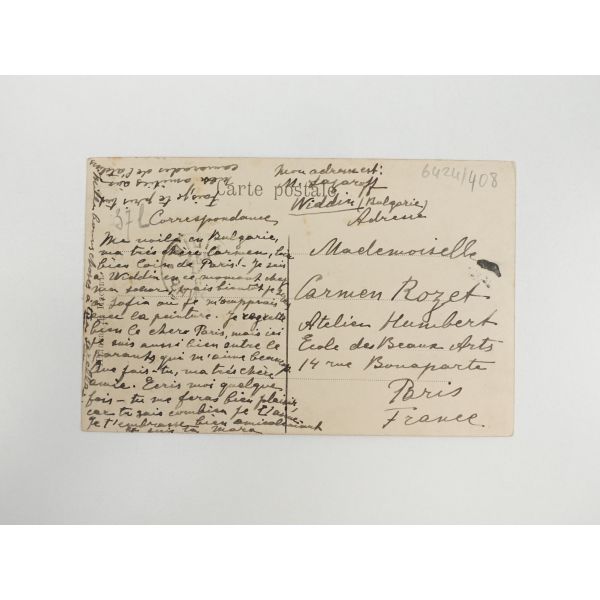 Carte postale
Correspondance
Me voilà en Bulgarie,
ma très chère Carmen, bien
loin de Paris! - Je suis
à Widdin en ce moment chez
ma soeur, mais bientôt je
à Sofia où je
la peinture. Je regrette
bien le chere Paris, mais ici
je suis aussi bien entre le
parants qui m'aime beaucoup
Que fais-tu, ma très chère
amie. Ecris moi quelque
fois - tu me feras bien plaisir
car tu sais combien je t'aime.
Je t'embrasse bien amicalement
Mara
37L
mon adresse est:
M. Lazaroff
Widdin (Bulgarie)
Adresse
6424/408
Mademoiselle
Carmen Rozet
Atelier Humbert
Ecole des Beaux Arts
14 rue Bonaparte
Paris
France